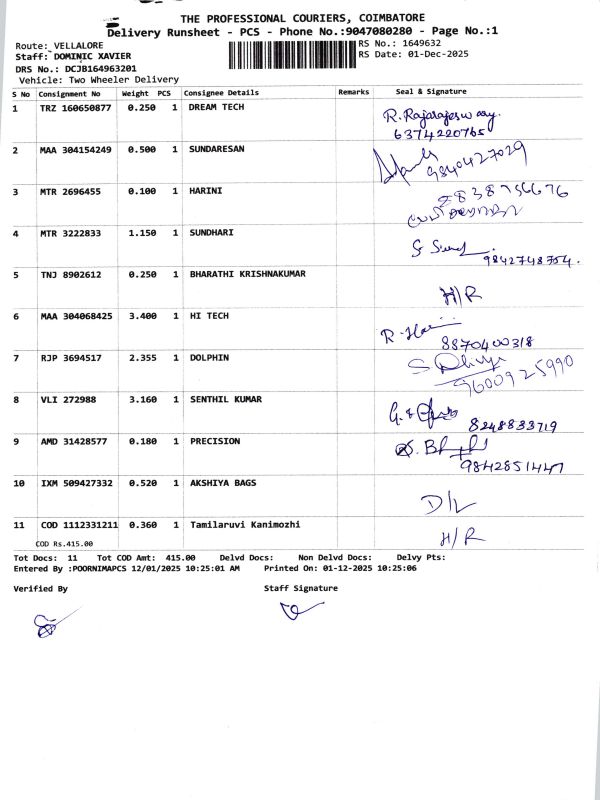 THE PROFESSIONAL COURIERS, COIMBATORE
Delivery Runsheet - PCS - Phone No.:9047080280 - Page No.:1
Route: VELLALORE
RS No.: 1649632
Staff: DOMINIC XAVIER
RS Date: 01-Dec-2025
DRS No.: DCJB164963201
Vehicle: Two Wheeler Delivery
S No Consignment No Weight PCS Consignee Details Remarks Seal & Signature
1 TRZ 160650877 0.250 1 DREAM TECH
R. Rajarajeswary.
6374220765
2 MAA 304154249 0.500 1 SUNDARESAN
9840427029
3 MTR 2696455 0.100 1 HARINI
4 MTR 3222833 1.150 1 SUNDHARI
9842748754.
5 TNJ 8902612 0.250 1 BHARATHI KRISHNAKUMAR
H/R
6 MAA 304068425 3.400 1 HI TECH
8870400318
7 RJP 3694517 2.355 1 DOLPHIN
9600925990
8 VLI 272988 3.160 1 SENTHIL KUMAR
8248833719
9 AMD 31428577 0.180 1 PRECISION
9842851447
10 IXM 509427332 0.520 1 AKSHIYA BAGS
D/L
11 COD 1112331211 0.360 1 Tamilaruvi Kanimozhi
COD Rs.415.00
H/R
Tot Docs: 11 Tot COD Amt: 415.00 Delvd Docs: Non Delvd Docs: Delvy Pts:
Entered By :POORNIMAPCS 12/01/2025 10:25:01 AM Printed On: 01-12-2025 10:25:06
Verified By Staff Signature